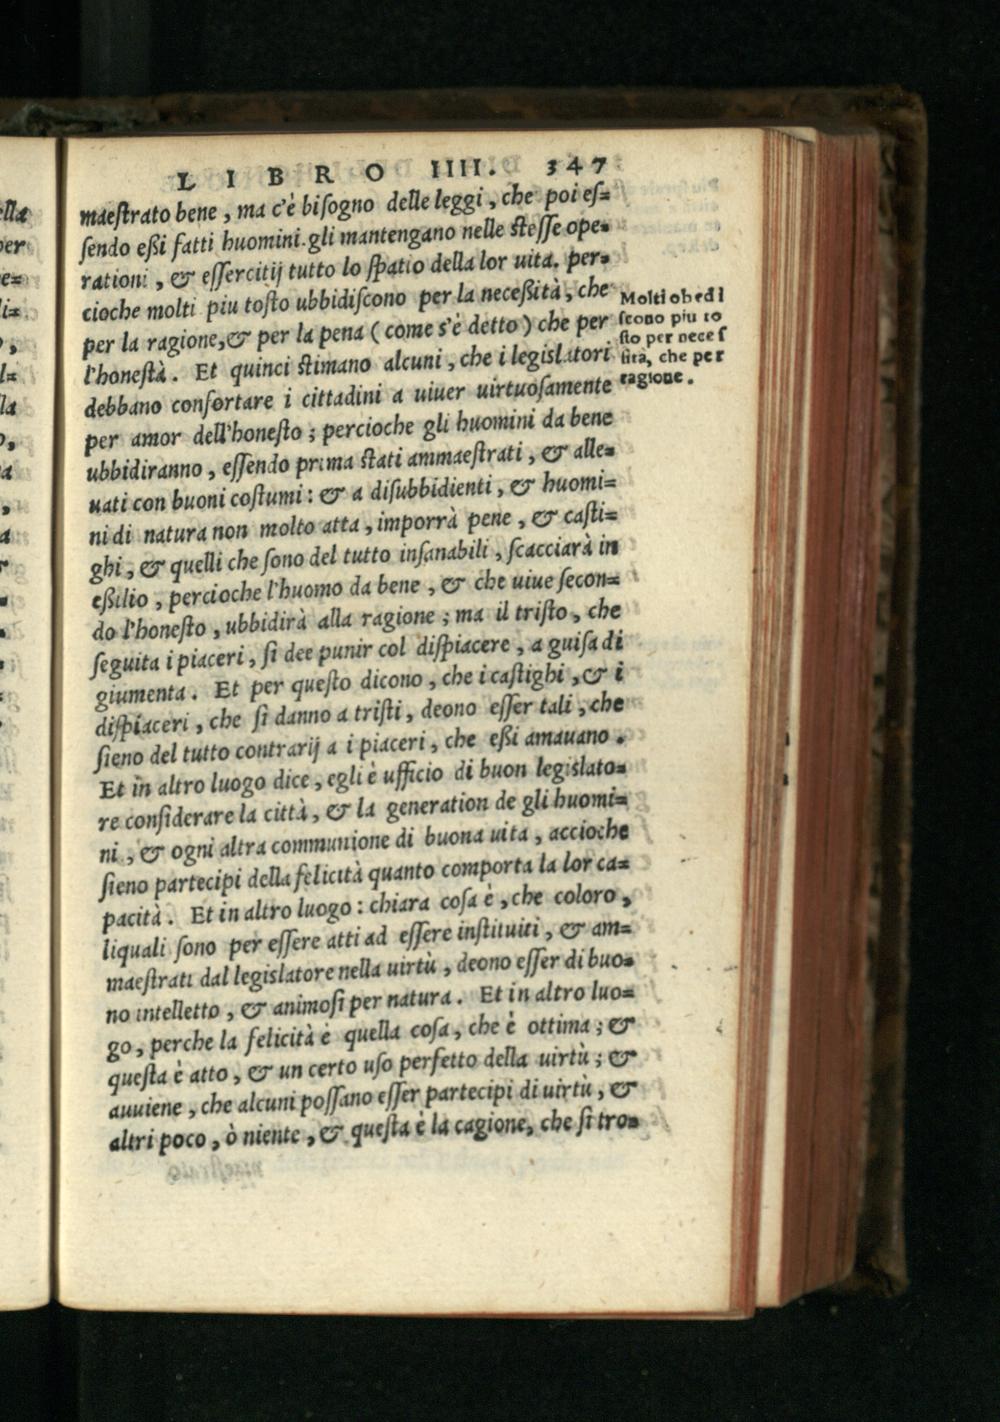 LIBRO IIII. 347
maeſtrato bene, ma c'è biſogno delle leggi, che poi eſ=
ſendo eßi fatti huomini gli mantengano nelle ſteſſe ope=
rationi, & eſſercitij tutto lo ſpatio della lor uita. per=
cioche molti piu toſto ubbidiſcono per la neceßità, che
per la ragione, & per la pena (come s'è detto) che per
l'honeſtà. Et quinci ſtimano alcuni, che i legislatori
debbano confortare i cittadini a uiuer uirtuoſamente
per amor dell'honeſto; percioche gli huomini da bene
ubbidiranno, eſſendo prima ſtati ammaeſtrati, & alle=
uati con buoni coſtumi: & a diſubbidienti, & huomi=
ni di natura non molto atta, imporrà pene, & caſti=
ghi, & quelli che ſono del tutto inſanabili, ſcacciarà in
eßilio, percioche l'huomo da bene, & che uiue ſecon=
do l'honeſto, ubbidirà alla ragione; ma il triſto, che
ſeguita i piaceri, ſi dee punir col diſpiacere, a guiſa di
giumenta. Et per queſto dicono, che i caſtighi, & i
diſpiaceri, che ſi danno a triſti, deono eſſer tali, che
ſieno del tutto contrarij a i piaceri, che eßi amauano.
Et in altro luogo dice, egli è ufficio di buon legislato=
re conſiderare la città, & la generation de gli huomi=
ni, & ogni altra communione di buona uita, accioche
ſieno partecipi della felicità quanto comporta la lor ca=
pacità. Et in altro luogo: chiara coſa è, che coloro,
liquali ſono per eſſere atti ad eſſere inſtituiti, & am=
maeſtrati dal legislatore nella uirtù, deono eſſer di buo=
no intelletto, & animoſi per natura. Et in altro luo=
go, perche la felicità è quella coſa, che è ottima; &
queſta è atto, & un certo uſo perfetto della uirtù; &
auuiene, che alcuni poſſano eſſer partecipi di uirtù, &
altri poco, ò niente, & queſta è la cagione, che ſi tro=
Molti obedi
ſcono piu to
ſto per neceſ
ſità, che per
ragione.